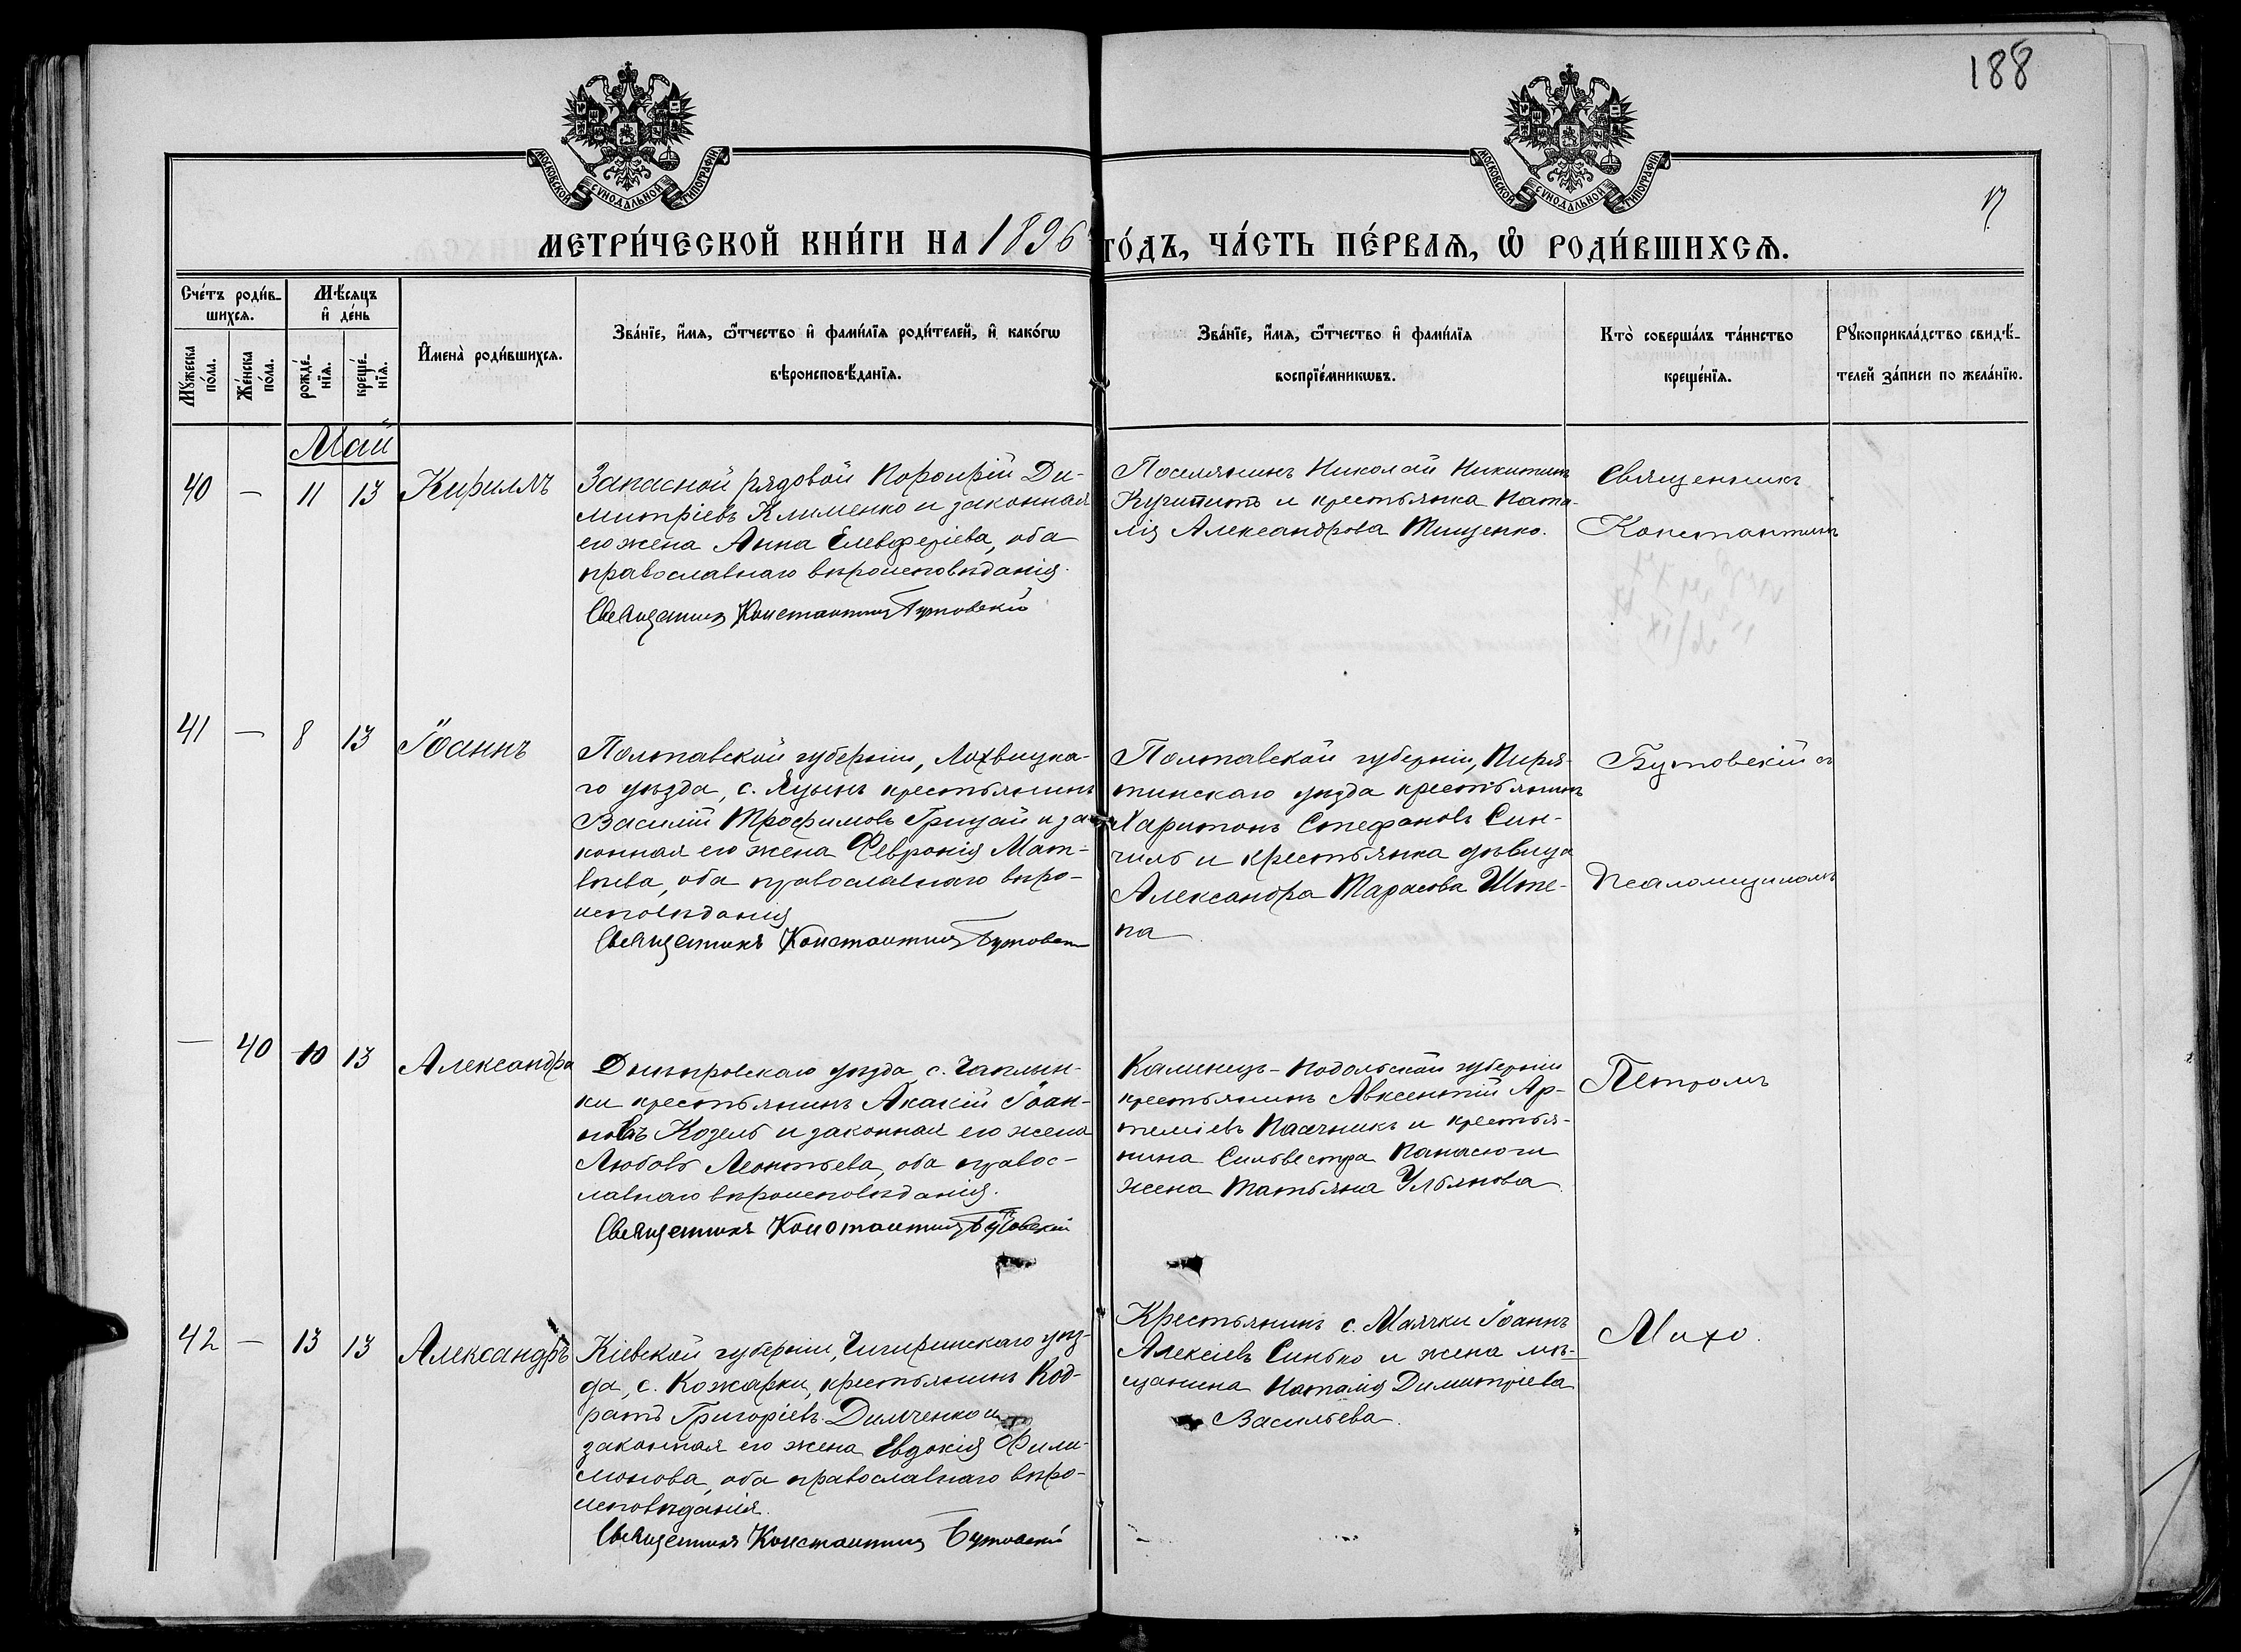 188
МОСКОВСКОЙ СѴНОДАЛЬНОЙ ТИПОГРАФІИ
МОСКОВСКОЙ СѴНОДАЛЬНОЙ ТИПОГРАФІИ
МЕТРИ́ЧЕСКОЙ КНИ́ГИ НА 1896 ГО́ДЪ, ЧА́СТЬ ПЕ́РВАѦ, Ѡ҆ РОДИ́ВШИХСѦ.
Сче́тъ роди́в-
шихсѧ.
Мѣ́сѧцъ
и҆ де́нь
Мꙋ́жеска
по́ла.
Же́нска
по́ла.
рожде́-
нїѧ.
креще́-
нїѧ.
И҆мена̀ роди́вшихсѧ.
Зва́нїе, и҆́мѧ, ѻ҆́тчество и҆ фами́лїѧ роди́телей, и҆ како́гѡ
вѣроисповѣ́данїѧ.
Зва́нїе, и҆́мѧ, ѻ҆́тчество и҆ фами́лїѧ
воспрїе́мникѡвъ.
Кто̀ соверша́лъ та́инство
креще́нїѧ.
Рꙋкоприкла́дство свидѣ́-
телей за́писи по жела́нїю.
Май
40 — 11 13 Кириллъ
Запасной рядовой Порфирій Ди-
митріевъ Клименко и законная
его жена Анна Елевферіева, оба
православнаго вѣроисповѣданія.
Священникъ Константинъ Бутовскій
Поселянинъ Николай Никитинъ
и крестьянка Ната-
лія Александрова Тищенко.
Священникъ
Константинъ
41 — 8 13 Іоаннъ
Полтавской губерніи, Лохвицка-
го уѣзда, с. Яцынъ крестьянинъ
Василій Трофимовъ Грицай и за-
конная его жена Февронія Мат-
вѣева, оба православнаго вѣро-
исповѣданія
Священникъ Константинъ Бутовск
Полтавской губерніи, Пиря-
тинскаго уѣзда крестьянинъ
Харитонъ Стефановъ Син-
чилъ и крестьянка дѣвица
Александра Тарасова Шпе-
па
Бутовскій съ
Псаломщикомъ
— 40 10 13 Александра
Днѣпровскаго уѣзда с. Чаплин-
ки крестьянинъ Акакій Іоан-
новъ Козелъ и законная его жена
Любовь Леонтьева, оба правос-
лавнаго вѣроисповѣданія.
Священникъ Константинъ Бутовскій
Каменец-Подольской губерніи
крестьянинъ Авксентій Ар-
теміевъ Пасѣчникъ и крестья-
нина Сильвестра Панасюги
жена Татьяна Ульянова
Петромъ
42 — 13 13 Александръ
Кіевской губерніи, Чигиринскаго уѣз-
да, с. Кожарки, крестьянинъ Код-
ратъ Григоріевъ Димченко и
законная его жена Евдокія Фили-
монова, оба православнаго вѣро-
исповѣданія.
Священникъ Константинъ Бутовскій
Крестьянинъ с. Маячки Іоаннъ
Алексіевъ Синько и жена мѣ-
щанина Наталія Димитріева
Васильева.
Михо.